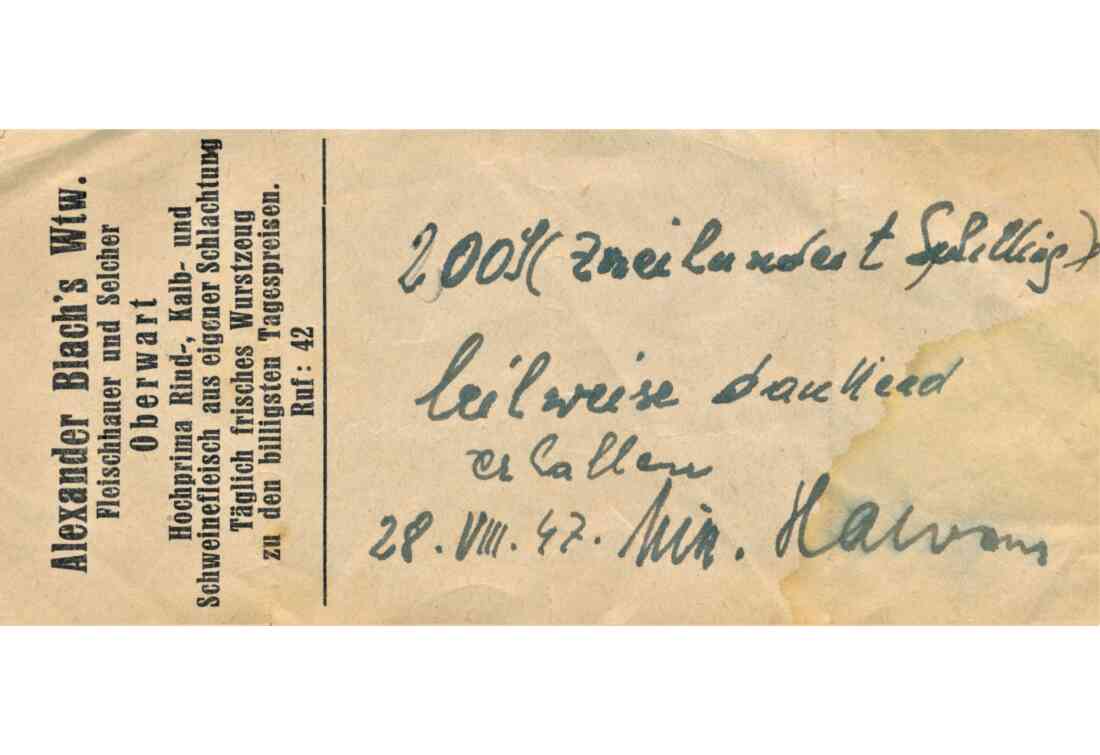 Alexander Blach's Wtw.
Fleischhauer und Selcher
Oberwart
Hochprima Rind-, Kalb- und
Schweinefleisch aus eigener Schlachtung
Täglich frisches Wurstzeug
zu den billigsten Tagespreisen.
Ruf: 42
200S (zweihundert Schilling)
teilweise dankend
erhalten
28. VIII. 47.